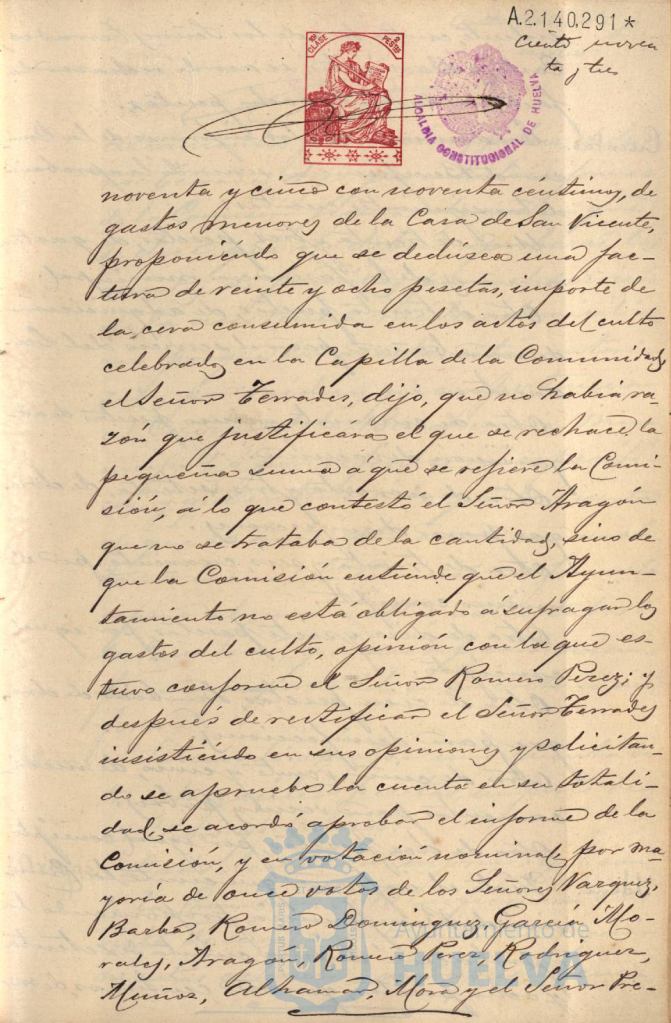 A.2.140.291*
Ciento noven
ta y tres
10ª CLASE 2 PESTAS
ALCALDIA CONSTITUCIONAL DE HUELVA
noventa y cinco con noventa céntimos, de
gastos menores de la Casa de San Vicente,
proponiéndo que se dedúsca una fac-
tura de veinte y ocho pesetas, importe de
la cera consumida en los actos del culto
celebrados en la Capilla de la Comunidad,
el Señor Terrades, dijo, que no habia ra-
zón que justificára el que se rechace la
pequeña suma á que se refiere la Comi-
sión, á lo que contestó el Señor Aragón
que no se trataba de la cantidad, sino de
que la Comisión entiende que el Ayun-
tamiento no está obligado á sufragar los
gastos del culto, opinión con la que es-
tuvo conforme el Señor Romero Perez; y
después de rectificar el Señor Terrades
insistiéndo en sus opiniones y solicitan-
do se apruebe la cuenta en su totali-
dad, se acordó aprobar el informe de la
Comisión, y en votación nominal, por ma-
yoria de once votos de los Señores Vazquez,
Barba, Romero Dominguez, Garcia Mo-
rales, Aragon, Romero Perez, Rodriguez,
Muñoz, Alhamar, Mora y el Señor Pre-
Ayuntamiento de
HUELVA